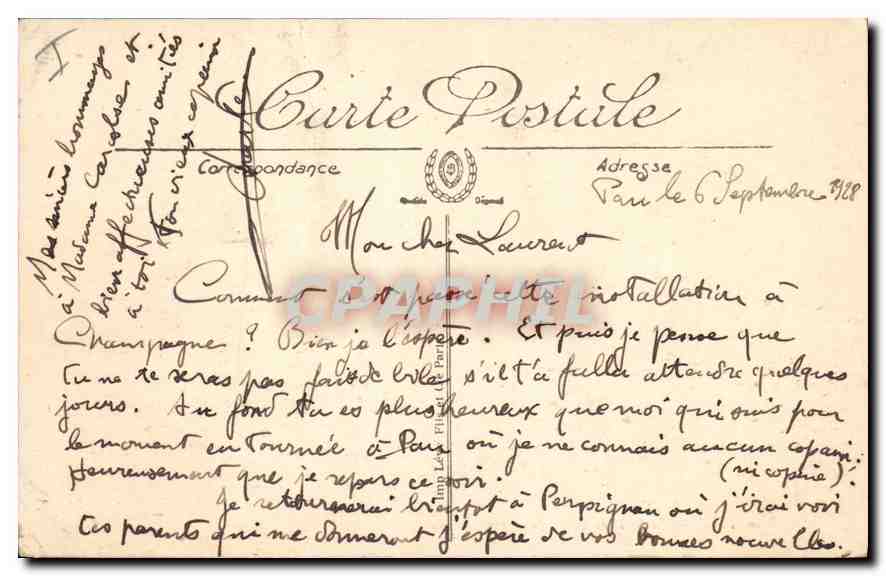 Carte Postale
Correspondance
Adresse
Pau le 6 Septembre 1928
Mon cher Laurent
Comment s'est passé cette installation à
Champagne ? Bien je l'espère. Et puis je pense que
tu ne te seras pas fait de bile s'il t'a fallu attendre quelques
jours. Au fond tu es plus heureux que moi qui suis pour
le moment en tournée à Pau où je ne connais aucun copain
(ni copine) !
Heureusement que je repars ce soir.
Je retournerai bientôt à Perpignan où j'irai voir
tes parents qui me donneront j'espère de vos bonnes nouvelles.
Mes sincères hommages
à Madame et
bien affectueuses amitiés
à toi Ton vieux copain
Imp Lévy Fils et Cie Paris
CPAPHIL